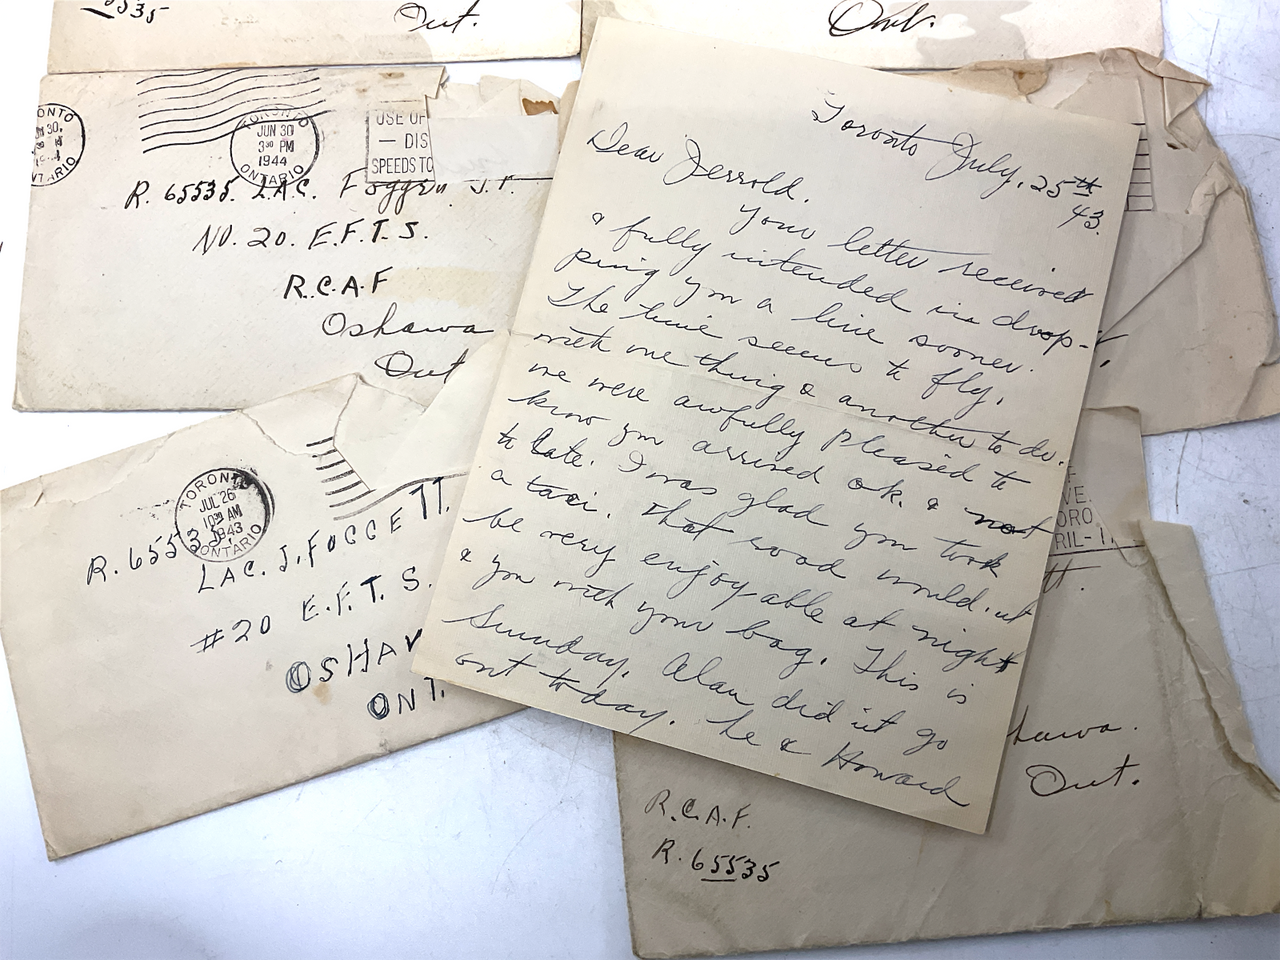 5535
Ont.
Ont.
TORONTO
JUN 30
3 30 PM
1944
ONTARIO
USE OF
— DIS
SPEEDS TO
ONTO
UN 30.
NTARIO
R. 65535. LAC. Foggett J.
NO. 20. E.F.T.S.
R.C.A.F
Oshawa
Ont
TORONTO
JUL 26
10 30 AM
1943
ONTARIO
R. 6553
LAC. J. FOGGETT.
#20 E.F.T.S.
OSHAW
ONT.
Toronto July, 25th
43.
Dear Jerrold.
Your letter received
& fully intended in drop-
ping you a line sooner.
The time seems to fly,
with one thing & another to do.
we were awfully pleased to
know you arrived ok. & not
to late. I was glad you took
a taxi. That road would.nt
be very enjoyable at night
& you with your bag. This is
Sunday. Alan did it go
out today. he & Howard
VE
ORO
RIL-1
tt.
hawa.
Ont.
R.C.A.F.
R. 65535